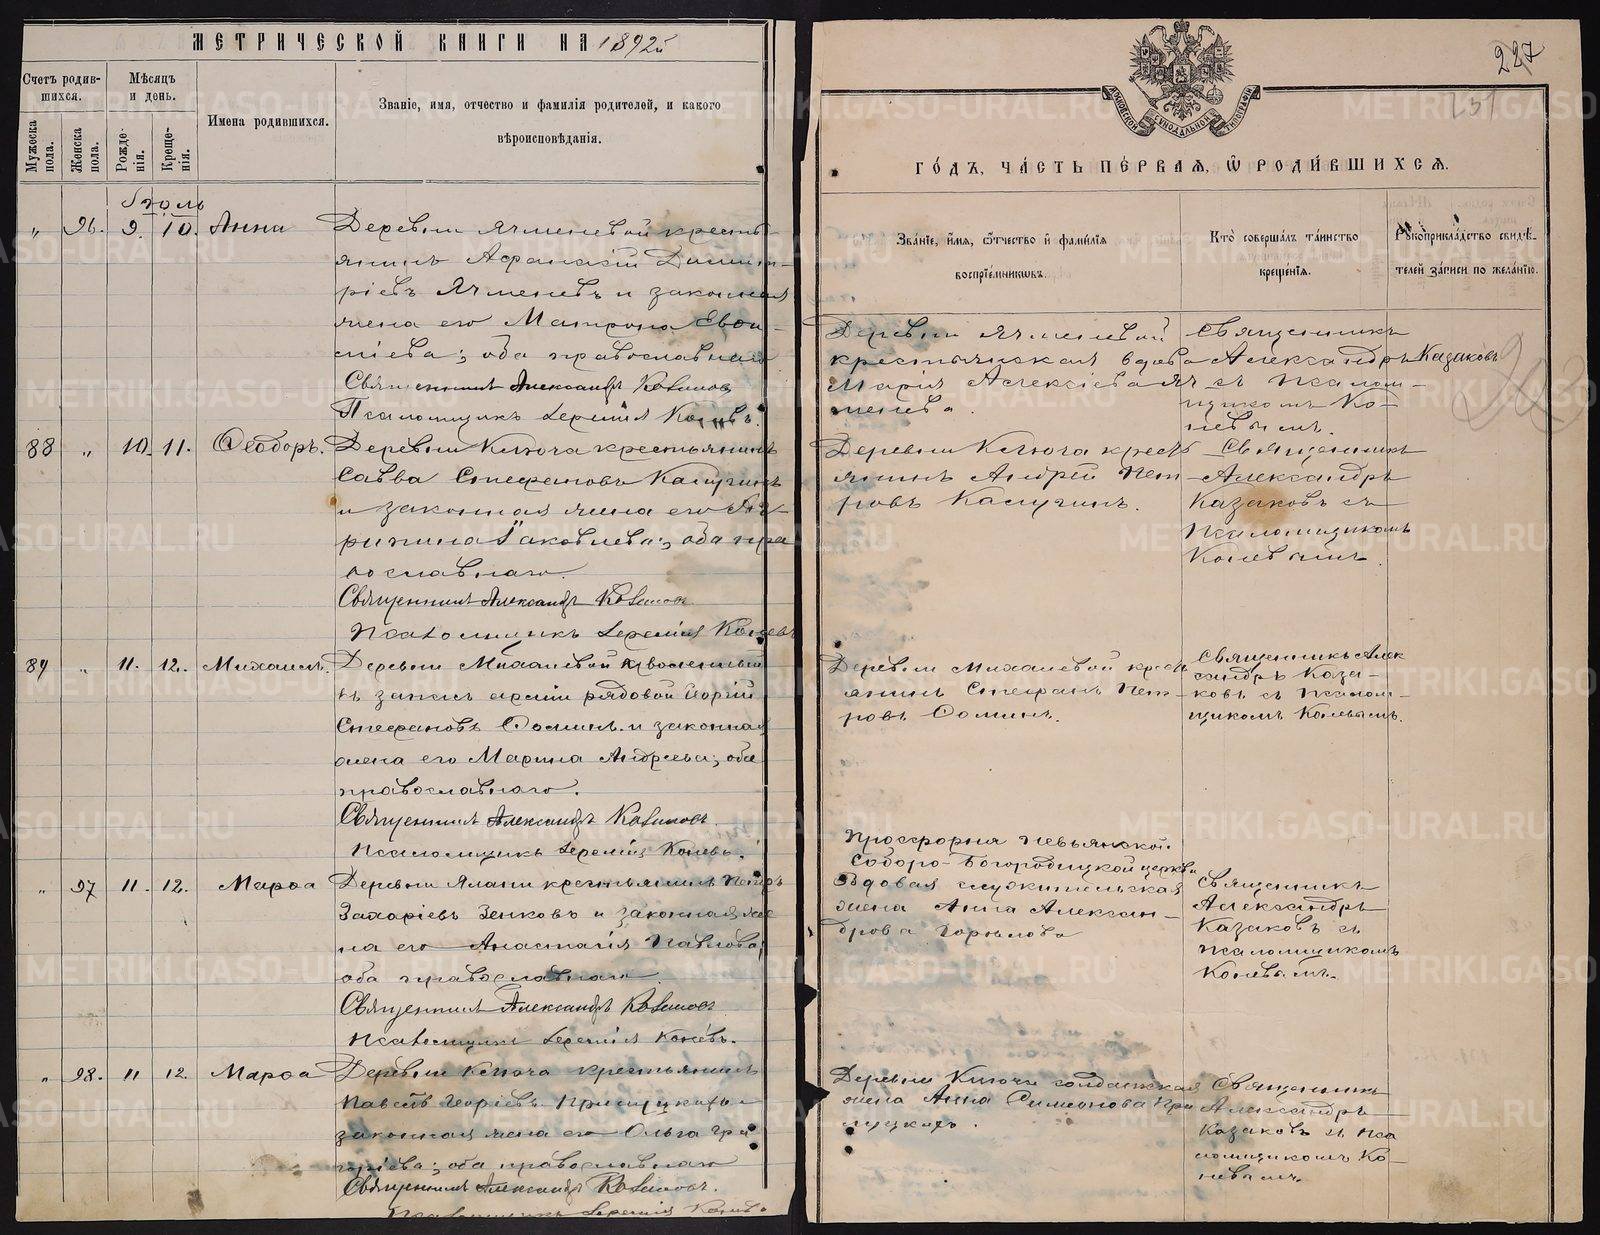 МЕТРИЧЕСКОЙ КНИГИ НА 1892й
Счетъ родив-
шихся.
Мѣсяцъ
и день.
Имена родившихся.
Званіе, имя, отчество и фамилія родителей, и какого
вѣроисповѣданія.
Мужеска
пола.
Женска
пола.
Рожде-
нія.
Креще-
нія.
Іюль
„ 96. 9. 10. Анна Деревни Ячменевой кресть-
янинъ Афанасій Димит-
ріевъ Ячменевъ и законная
жена его Матрона Евои-
міева; оба православнаго
Священникъ Александръ Казаковъ
Псаломщикъ Іеремія Коневъ.
88 „ 10. 11. Ѳеодоръ. Деревни Ключа крестьянинъ
Савва Стефановъ Калугинъ
и законная жена его Ag-
рипина Іаковлева; оба пра
вославнаго.
Священникъ Александръ Казаковъ
Псаломщикъ Іеремія Коневъ
89 „ 11. 12. Михаилъ. Деревни Михалевой уволенный
въ запасъ арміи рядовой Георгій
Стефановъ Ѳоминъ и законная
жена его Марина Андреева; оба
православнаго.
Священникъ Александръ Казаковъ.
Псаломщикъ Іеремія Коневъ.
„ 97 11. 12. Марѳа Деревни Ялани крестьянинъ Петръ
Захаріевъ Зенковъ и законная же
на его Анастасія Павлова;
оба православнаго
Священникъ Александръ Казаковъ
Псаломщикъ Іеремія Коневъ.
„ 98. 11 12. Марѳа Деревни Ключа крестьянинъ
Павелъ Георгіевъ и
законная жена его Ольга Гри
горіева; оба православнаго
Священникъ Александръ Казаковъ.
Псаломщикъ Іеремія Коневъ
227
231
МОСКОВСКОЙ СѴНОДАЛЬНОЙ ТИПОГРАФІИ
ГО́ДЪ, ЧА́СТЬ ПЕ́РВАЯ, Ѡ҆ РОДИ́ВШИХСЯ.
Зва́ніе, и҆́мя, ѻ҆́тчество и҆ фами́лія
воспріе́мниковъ.
Кто̀ соверша́лъ та́инство
креще́нія.
Рꙋкоприкла́дство свидѣ́-
телей за́писи по жела́нію.
Деревни Ячменевой
крестьянская вдова
Марія Алексіева Яч
менева.
Священникъ
Александръ Казаковъ
съ псалом-
щикомъ Ко-
невымъ.
Деревни Ключа крестъ
янинъ Андрей Пет
ровъ Калугинъ.
Священникъ
Александръ
Казаковъ съ
псаломщикомъ
Коневымъ.
Деревни Михалевой крест
янинъ Стефанъ Пет-
ровъ Ѳоминъ.
Священникъ Алек
сандръ Каза-
ковъ съ псалом-
щикомъ Коневымъ.
Просфорня Невьянской
Соборо-Богородицкой церкви
вдовая служительская
жена Анна Алексан-
дрова Горѣлова
Священникъ
Александръ
Казаковъ съ
псаломщикомъ
Коневымъ.
Деревни Ключи солдатская
жена Анна Симеонова При
Священникъ
Александръ
Казаковъ съ пса
ломщикомъ Ко-
невымъ.
METRIKI.GASO-URAL.RU